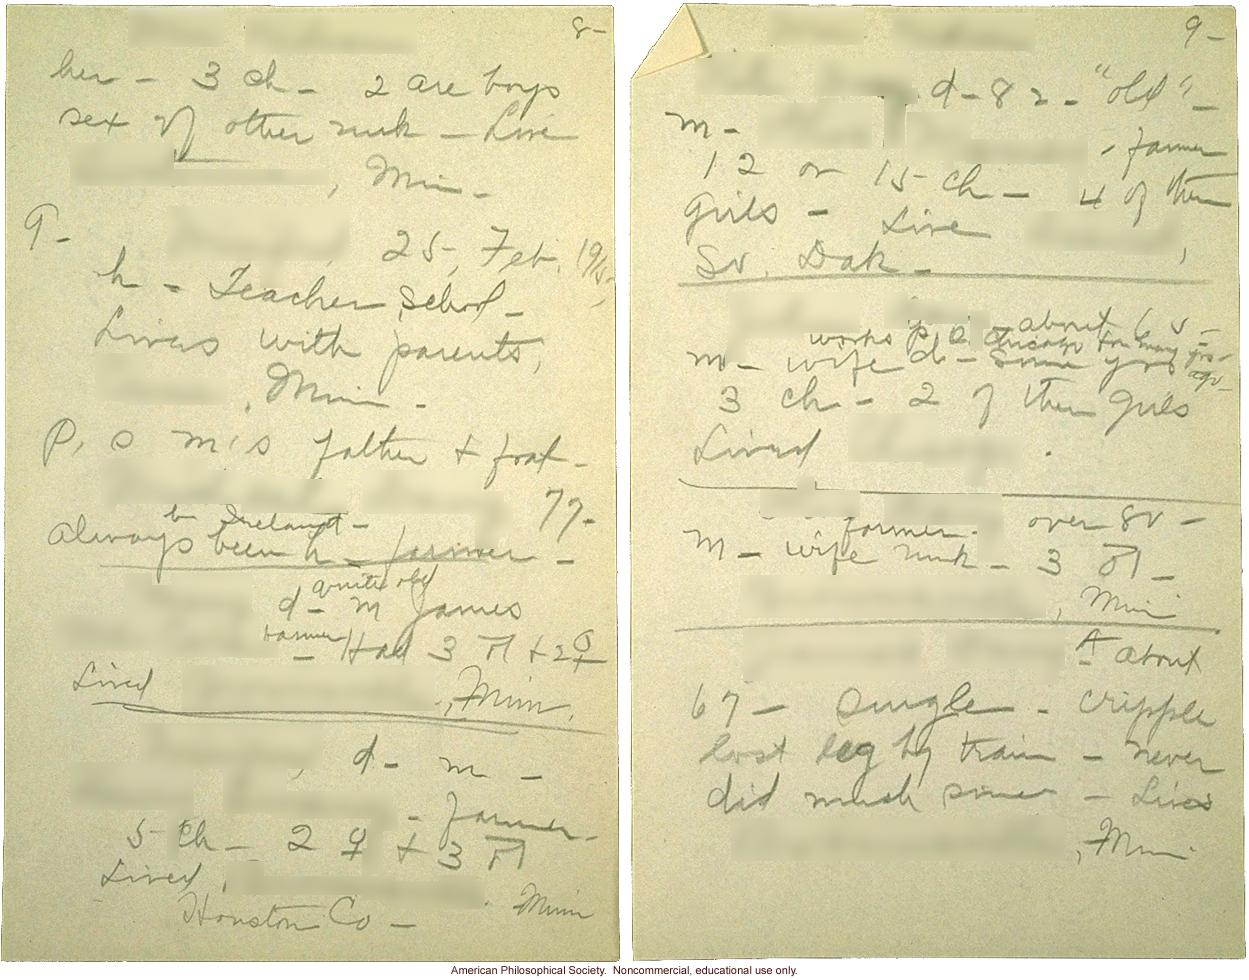 8-
her - 3 ch - 2 are boys
sex of other unk - Live
, Min -
9- 25, Feb, 1915,
h - Teacher school -
Lives with parents,
, Min -
P. S M's father + frat -
77-
b Ireland -
always been h - farmer -
quite old
d - m James
farmer - Had 3 ♂ + 2 ♀
Lived , Minn.
, d - m -
- farmer -
5 ch - 2 ♀ + 3 ♂
Lived,
Houston Co - Minn
9-
d - 82 - "old" -
m -
, farmer
12 or 15 ch - 4 of them
girls - Live ,
So. Dak -
about 65 -
works p. o. Chicago for many yrs -
m - wife d - some yrs ago -
3 ch - 2 of them girls
Lived .
farmer - over 80 -
m - wife unk - 3 ♂ -
, Min
A - about
67 - Single - cripple
lost leg by train - never
did much since - Lives
, Min
American Philosophical Society. Noncommercial, educational use only.